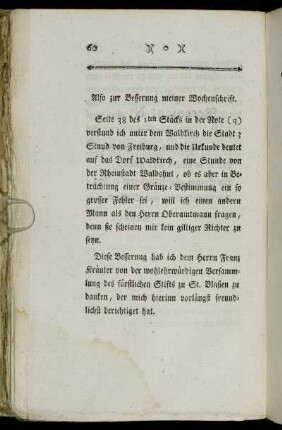 62 N o N
Also zur Besserung meiner Wochenschrift.
Seite 38 des 1ten Stücks in der Note (q)
verstund ich unter dem Waldkirch die Stadt 3
Stund von Freiburg, und die Urkunde deutet
auf das Dorf Waldkirch, eine Stunde von
der Rheinstadt Waldshut, ob es aber in Be-
trachtung einer Gränze-Bestimmung ein so
grosser Fehler sei, will ich einen andern
Mann als den Herrn Oberamtmann fragen,
denn sie scheinen mir kein giltiger Richter zu
seyn.
Diese Besserung hab ich dem Herrn Franz
Kräuter von der wohlehrwürdigen Versamm-
lung des fürstlichen Stifts zu St. Blasien zu
danken, der mich hierinn vorlängst freund-
lichst berichtiget hat.